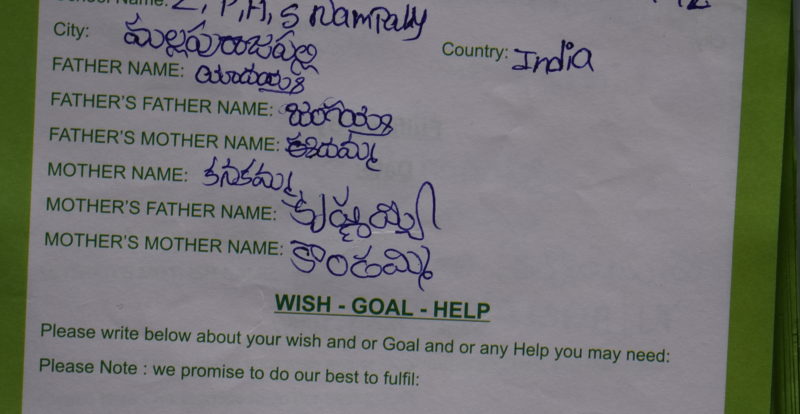 School Name: Z, P, H, S Nampally
City: మల్లపురాజపల్లి
Country: India
FATHER NAME: యాదయ్య
FATHER'S FATHER NAME: జంగయ్య
FATHER'S MOTHER NAME:
MOTHER NAME: కనకమ్మ
MOTHER'S FATHER NAME: కృష్ణయ్య
MOTHER'S MOTHER NAME: కొండమ్మ
WISH - GOAL - HELP
Please write below about your wish and or Goal and or any Help you may need:
Please Note : we promise to do our best to fulfil: